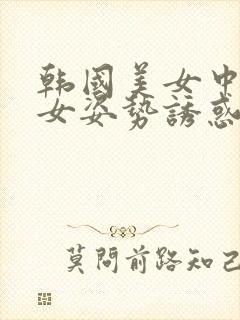 韩國美女中
女姿势誘惑
莫問前路知己